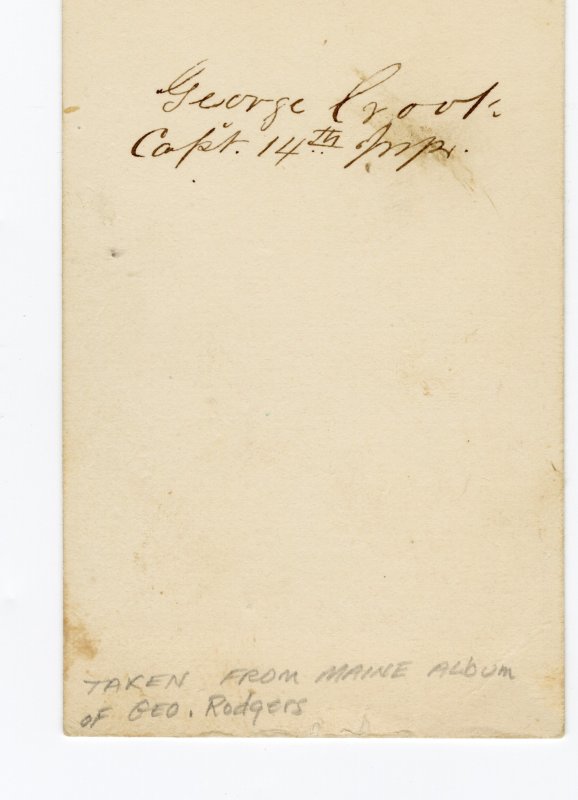 George Crook
Capt. 14th
TAKEN FROM MAINE ALBUM
OF GEO. Rodgers